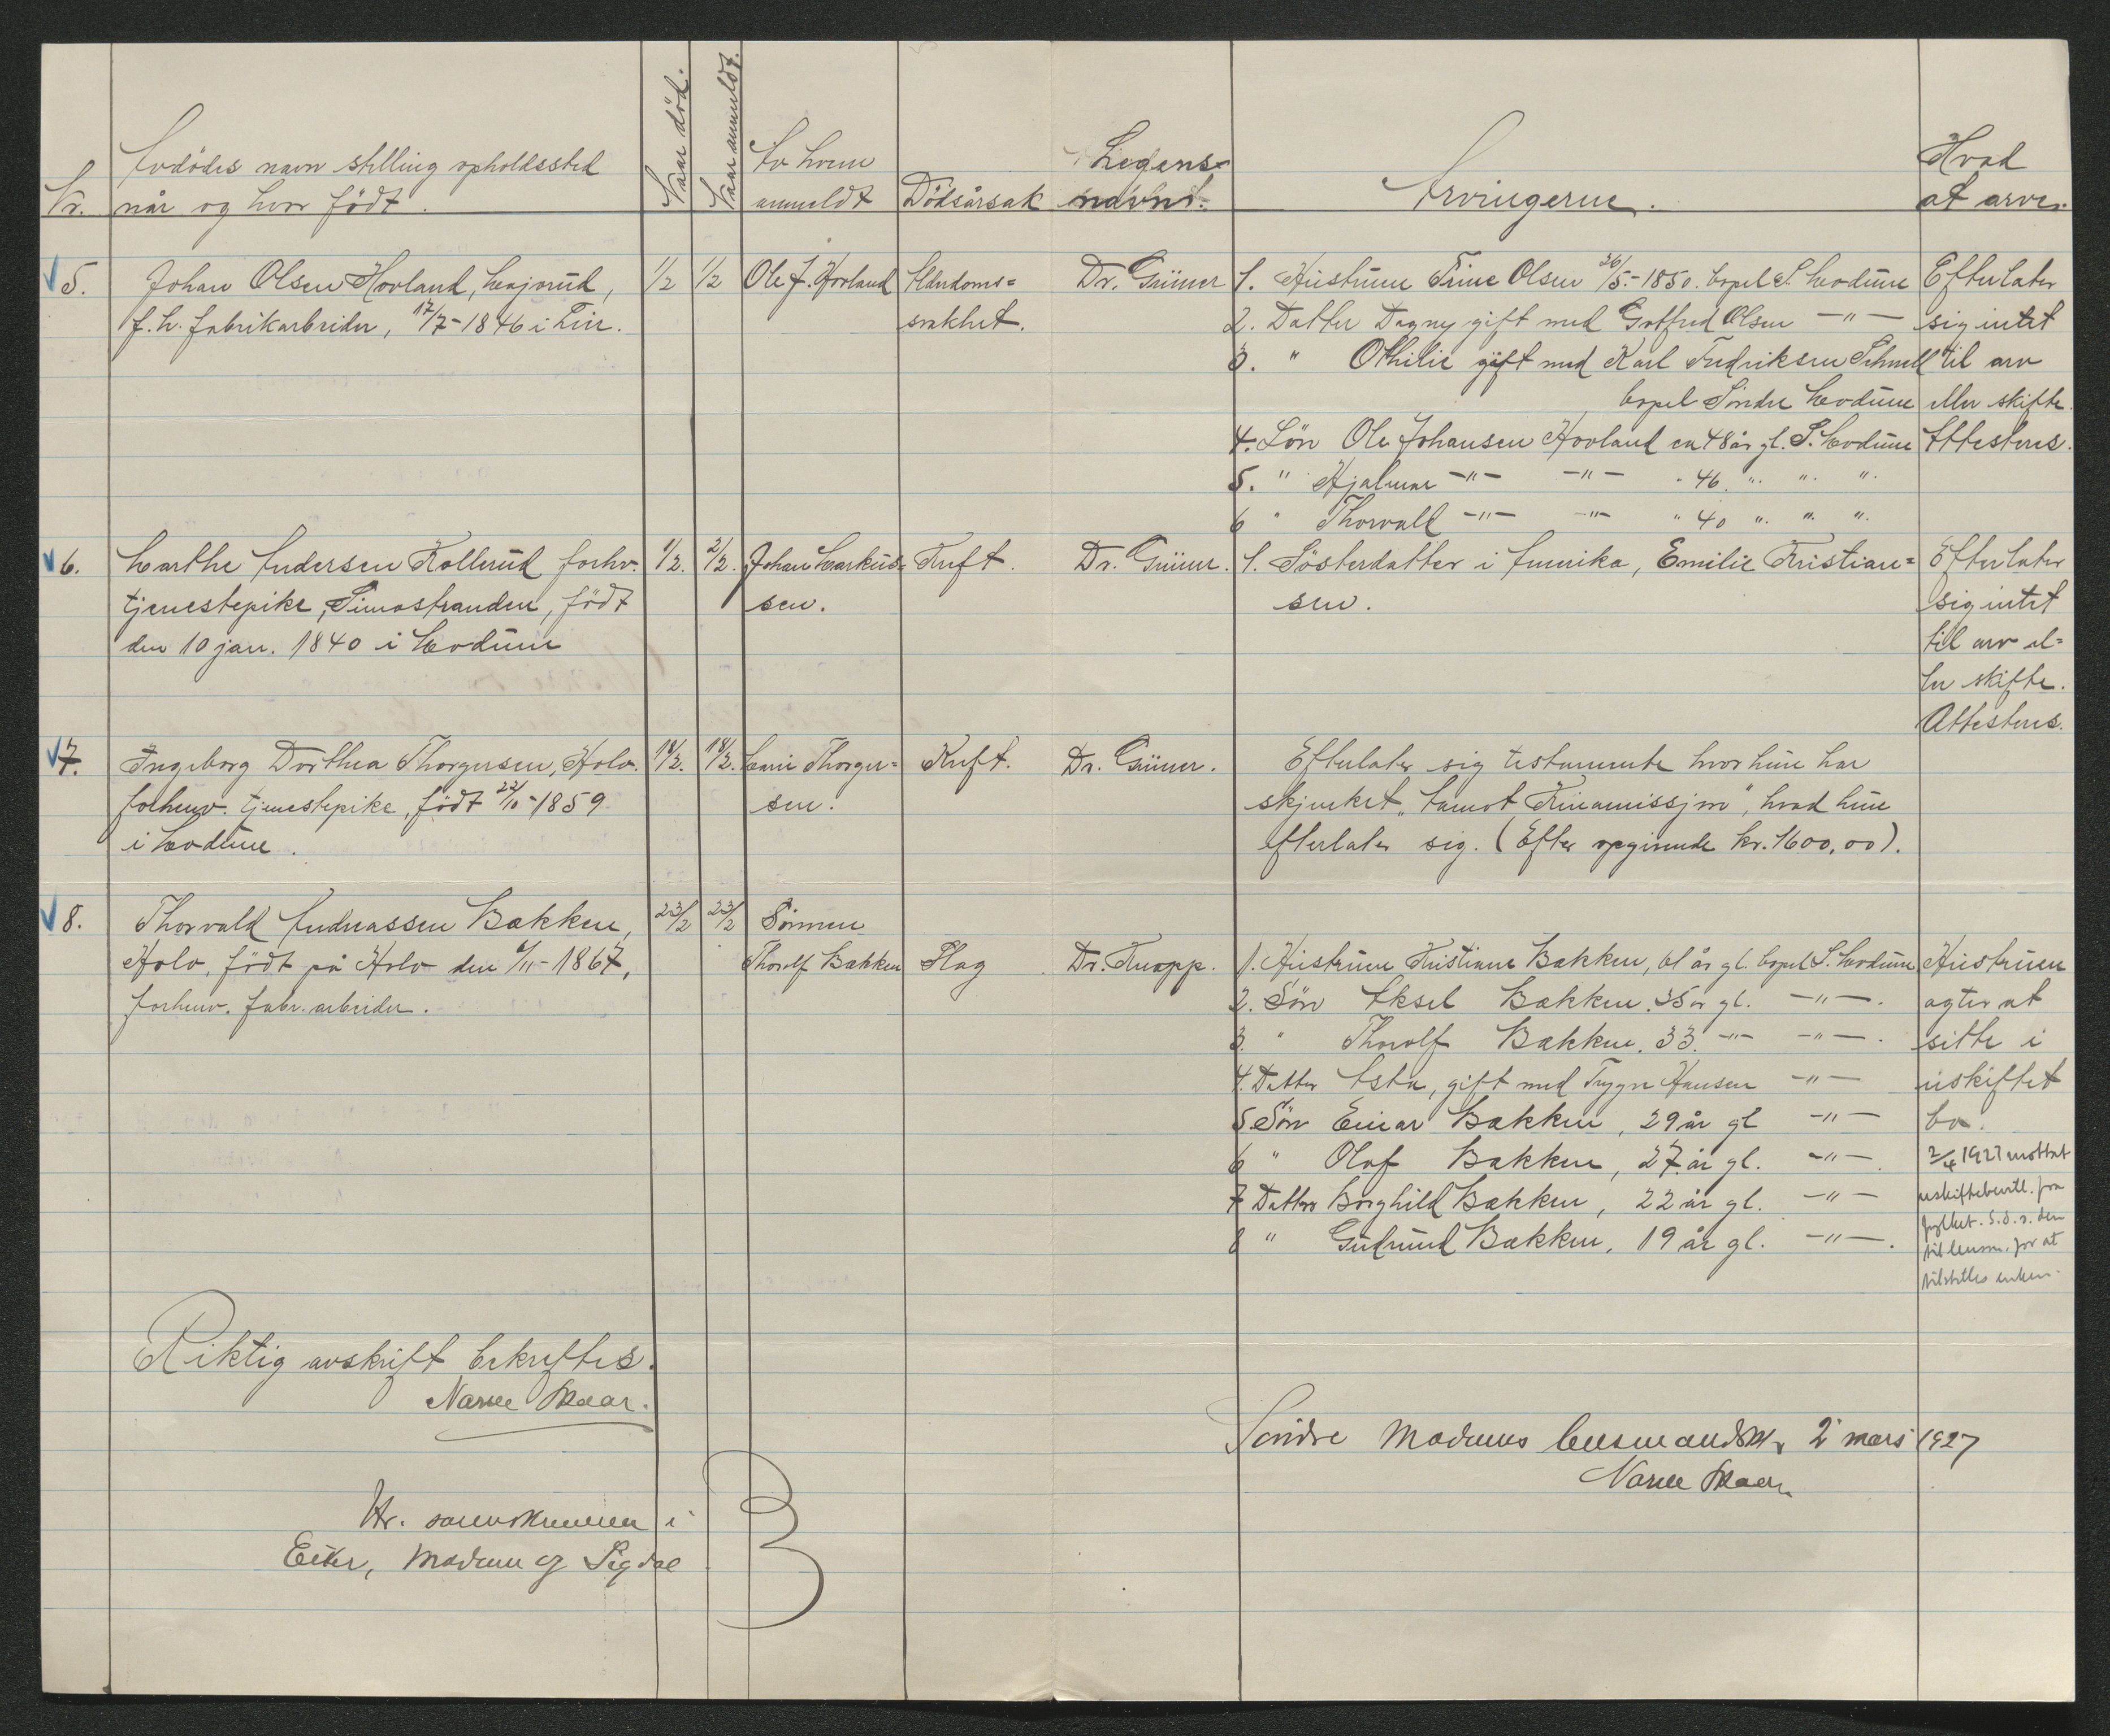 Nr.
Avdödes navn stilling opholdssted
når og hvor född.
Naar död.
Naar anmeldt.
Av hvem
anmeldt
Dödsårsak
Legens-
navn.
Arvingerne.
Hvad
at arve.
5.
Johan Olsen Hovland,
f.h. fabrikarbeider, 17/7-1846 i Lier.
1/2
1/2
Ole J. Hovland
Alderdoms=
svakhet.
Dr. Grüner
1. Hustruen Trine Olsen 26/5-1850. bopel S. Modum
2. Datter Dagny gift med Gotfred Olsen -"-
3. " Othilie gift med Karl Fredriksen Schnell
bopel Söndre Modum
4. Sön Ole Johansen Hovland ca 48 år gl. S. Modum
5. " Hjalmar -"- -"- " 46. " " "
6 " Thorvald -"- -"- " 40 " " "
Efterlater
sig intet
til arv
eller skifte.
Attesteres.
6.
Marthe Andersen Kollerud forhv.
tjenestepike, Simostranden, född
den 10 jan. 1840 i Modum
1/2.
2/2.
Johan Markus=
sen.
Kreft.
Dr. Grüner.
1. Sösterdatter i Amerika, Emilie Kristian=
sen.
Efterlater
sig intet
til arv el=
ler skifte.
Attesteres.
7.
Ingeborg Dorthea Thorgersen, Holv.
forhenv. tjenestepike, född 22/10-1859
i Modum.
18/2.
18/2.
Marie Thorger=
sen.
Kreft.
Dr. Grüner.
Efterlater sig testamente hvor hun har
skjenket "Kinamissjon", hvad hun
efterlater sig. (Efter opgivende kr. 1600,00).
8.
Thorvald Andreassen Bakken,
Holv, född på Holv den 6/11-1867,
forhenv. fabr. arbeider.
23/2
23/2
Sönnen
Thorolf Bakken
Slag
Dr. Knapp.
1. Hustruen Kristiane Bakken, 61 år gl. bopel S. Modum
2. Sön Aksel Bakken. 35 år gl. -"-.
3. " Thorolf Bakken. 33. -"- -"-.
4. Datter Asta, gift med Trygve Hansen -"-
5 Sön Einar Bakken, 29 år gl -"-
6 " Olaf Bakken, 27 år gl. -"-.
7 Datter Borghild Bakken, 22 år gl. -"-
8 " Gudrund Bakken, 19 år gl. -"-.
Hustruen
agter at
sitte i
uskiftet
bo.
2/4 1927 mottat
uskiftebevill. fra
fylket. S.d. s. den
til lensm. for at
tilstilles enken.
Riktig avskrift bekreftes.
Narve Skaar.
Söndre Modums lensmandsk. 2 mars 1927
Narve Skaar
Hr. sorenskriveren i
Eiker, Modum og Sigdal
B